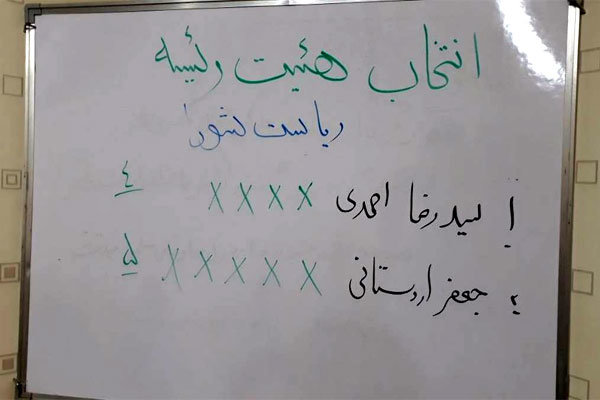 انتخاب هئیت رئیسه
ریاست شورا
۱ سید رضا احمدی X X X X ٤
۲ جعفر اردستانی X X X X X ۵